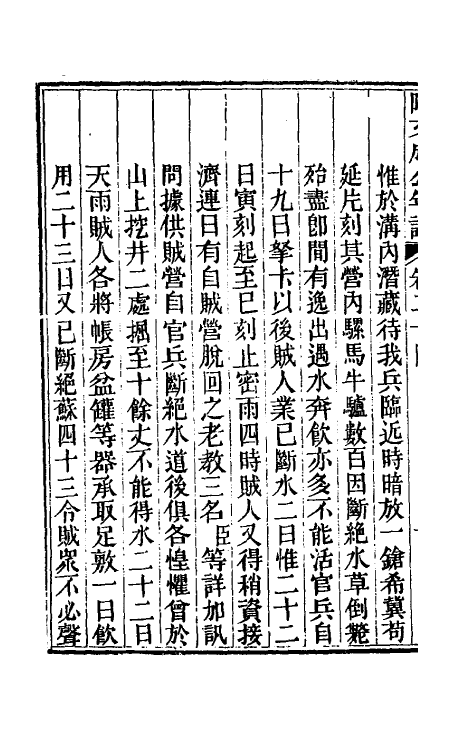 惟於溝內潛藏待我兵臨近時暗放一鎗希冀苟
延片刻其營內騾馬牛驢數百因斷絕水草倒斃
殆盡卽間有逸出遇水奔飲亦多不能活官兵自
十九日拏卡以後賊人業已斷水二日惟二十二
日寅刻起至巳刻止密雨四時賊人又得稍資接
濟連日有自賊營脫回之老教三名臣等詳加訊
問據供賊營自官兵斷絕水道後俱各惶懼曾於
山上挖井二處掘至十餘丈不能得水二十二日
天雨賊人各將帳房盆罐等器承取足敷一日飲
用二十三日又已斷絕蘇四十三令賊眾不必聲